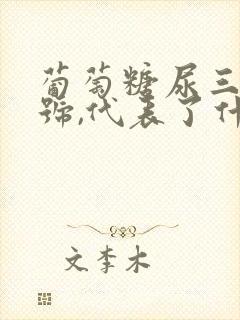 葡萄糖尿三
號,代表了什
文李木